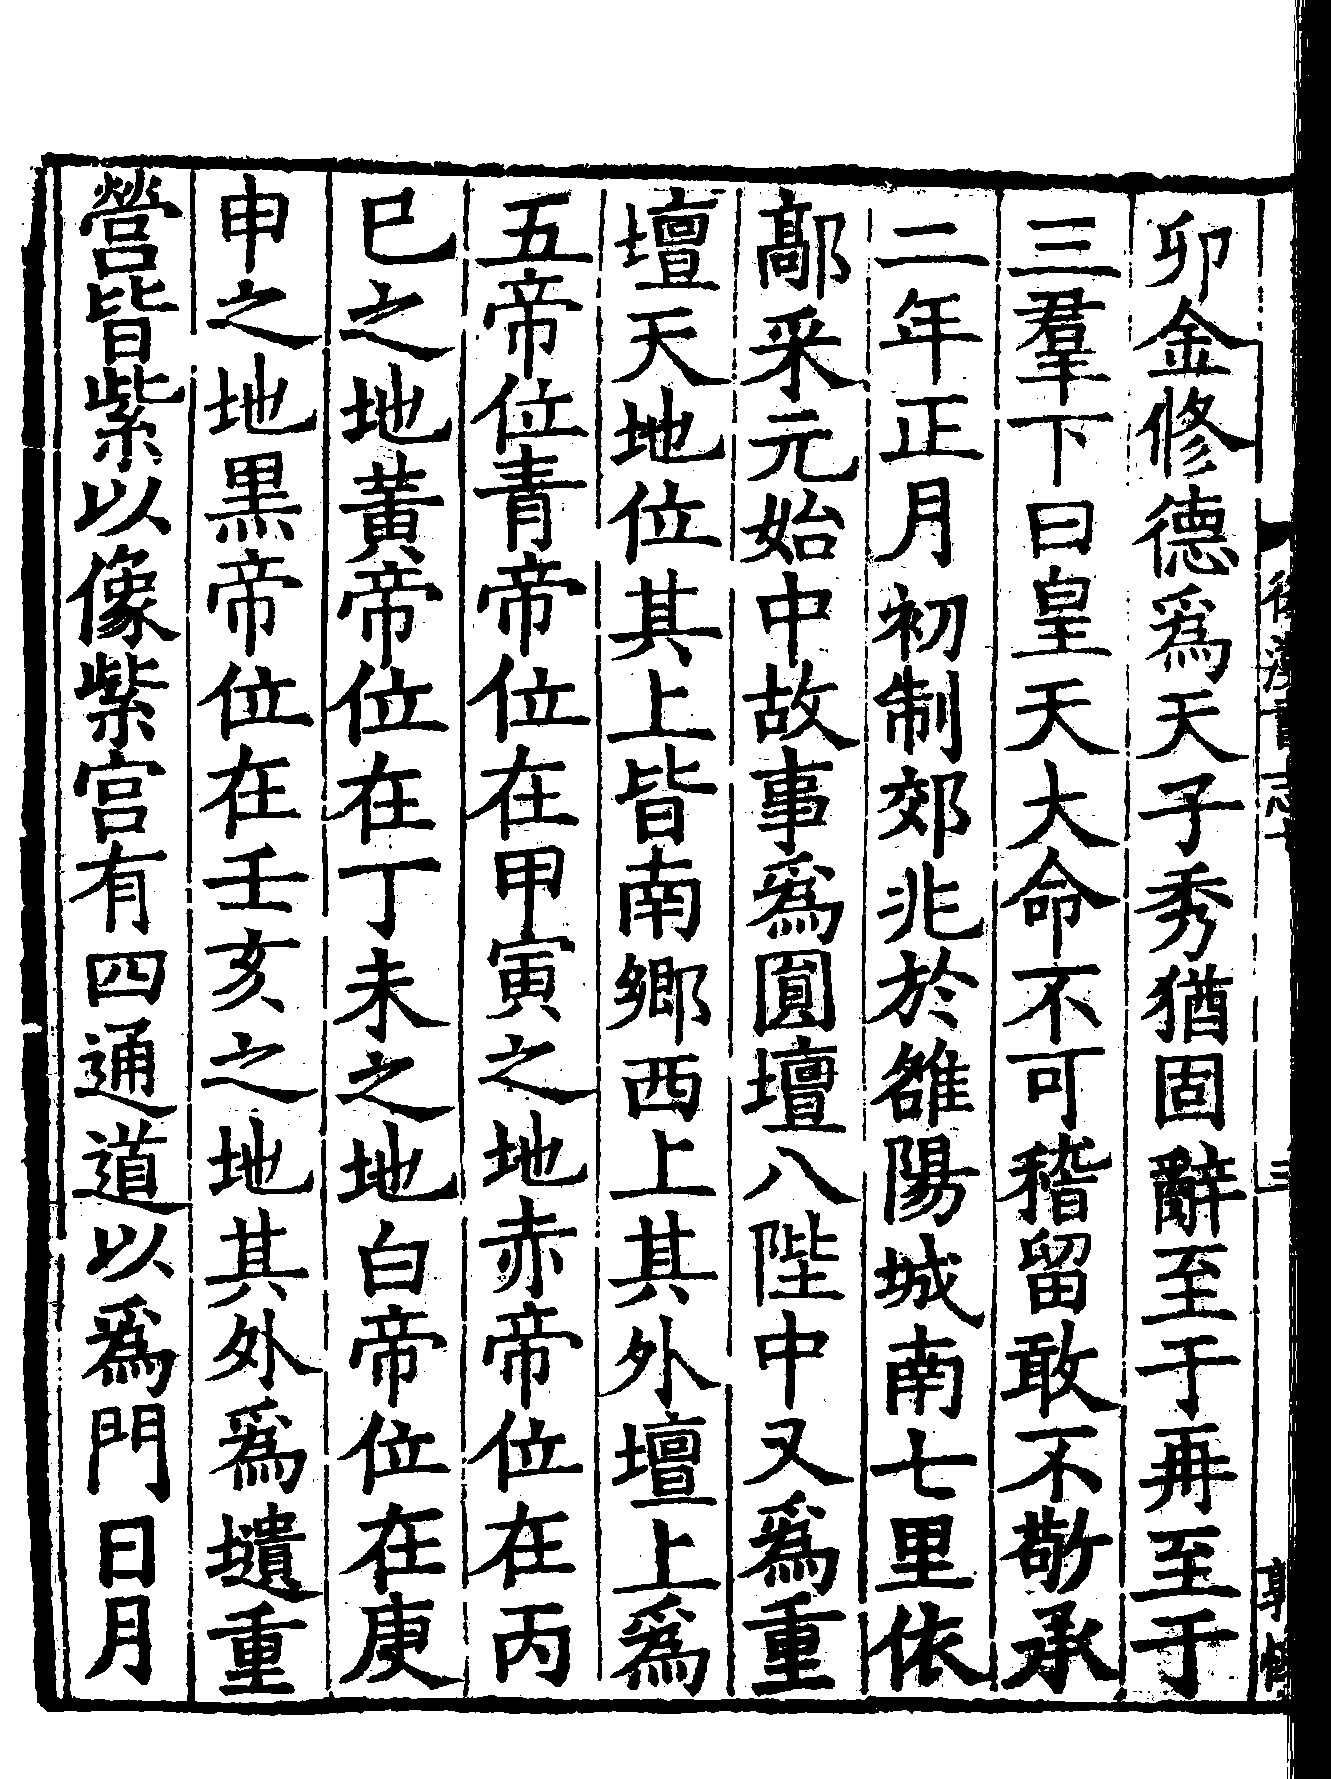 後漢書志七 三
卯金修德爲天子秀猶固辭至于再至于
三羣下曰皇天大命不可稽留敢不敬承
二年正月初制郊兆於雒陽城南七里依
鄗采元始中故事爲圓壇八陛中又爲重
壇天地位其上皆南鄉西上其外壇上爲
五帝位青帝位在甲寅之地赤帝位在丙
巳之地黃帝位在丁未之地白帝位在庚
申之地黑帝位在壬亥之地其外爲壝重
營皆紫以像紫宮有四通道以爲門日月